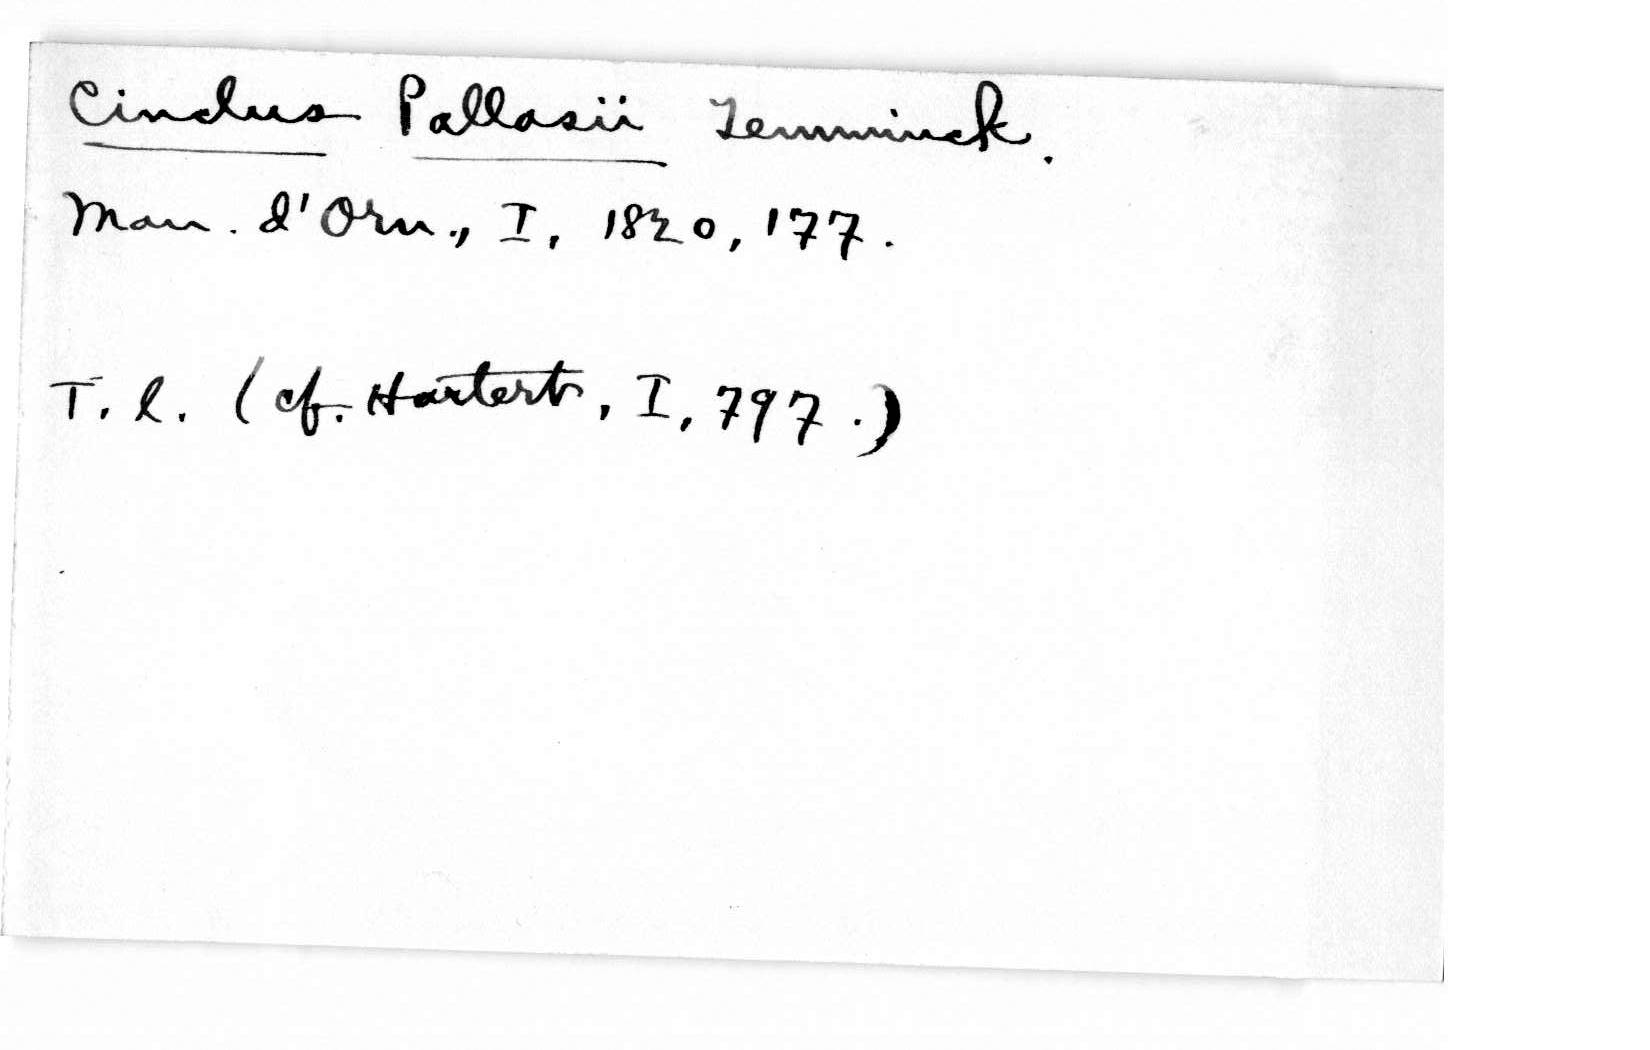 Cinclus Pallasii Temminck.
Man. d'Orn., I, 1820, 177.
T. l. (cf. Hartert, I, 797.)